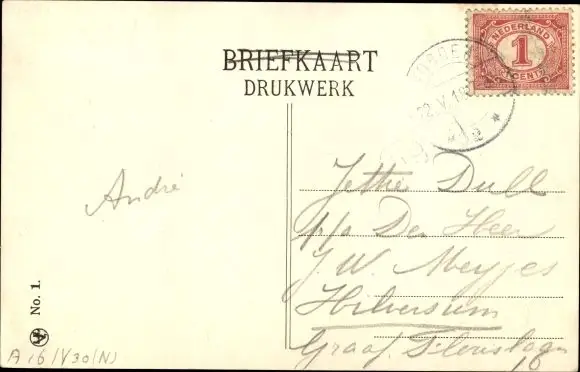 BRIEFKAART
DRUKWERK
NEDERLAND
1
CENT
22. V. 1
André
Jettie Dull
p/a Den Heer
J. W. Meyjes
Hilversum
Graaf
16
No. 1.
A 16/V30/NJ